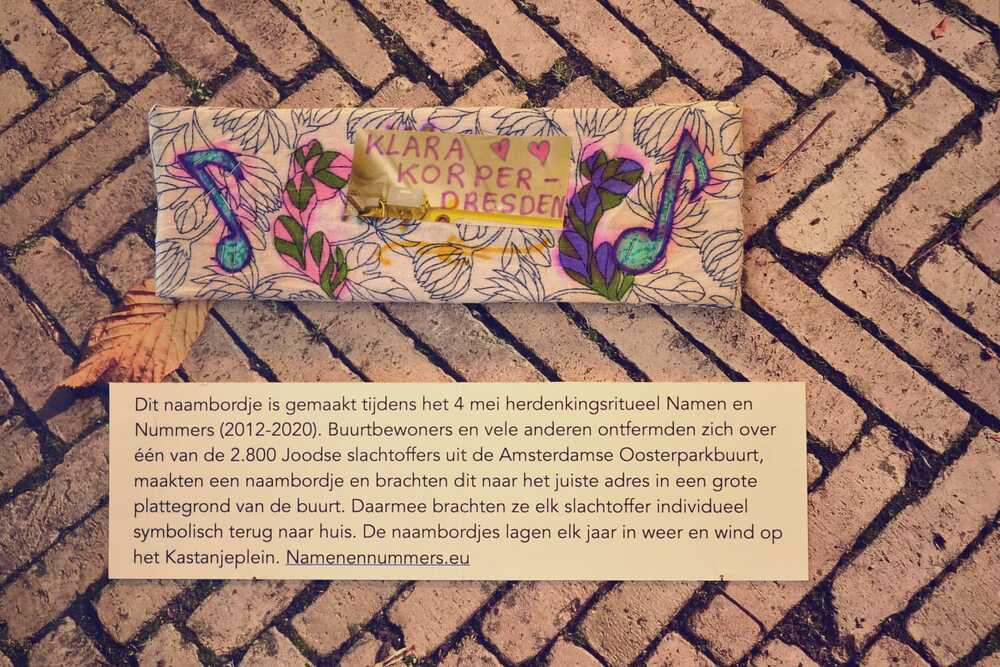 KLARA
KORPER-
DRESDEN
Dit naambordje is gemaakt tijdens het 4 mei herdenkingsritueel Namen en
Nummers (2012-2020). Buurtbewoners en vele anderen ontfermden zich over
één van de 2.800 Joodse slachtoffers uit de Amsterdamse Oosterparkbuurt,
maakten een naambordje en brachten dit naar het juiste adres in een grote
plattegrond van de buurt. Daarmee brachten ze elk slachtoffer individueel
symbolisch terug naar huis. De naambordjes lagen elk jaar in weer en wind op
het Kastanjeplein. Namenennummers.eu